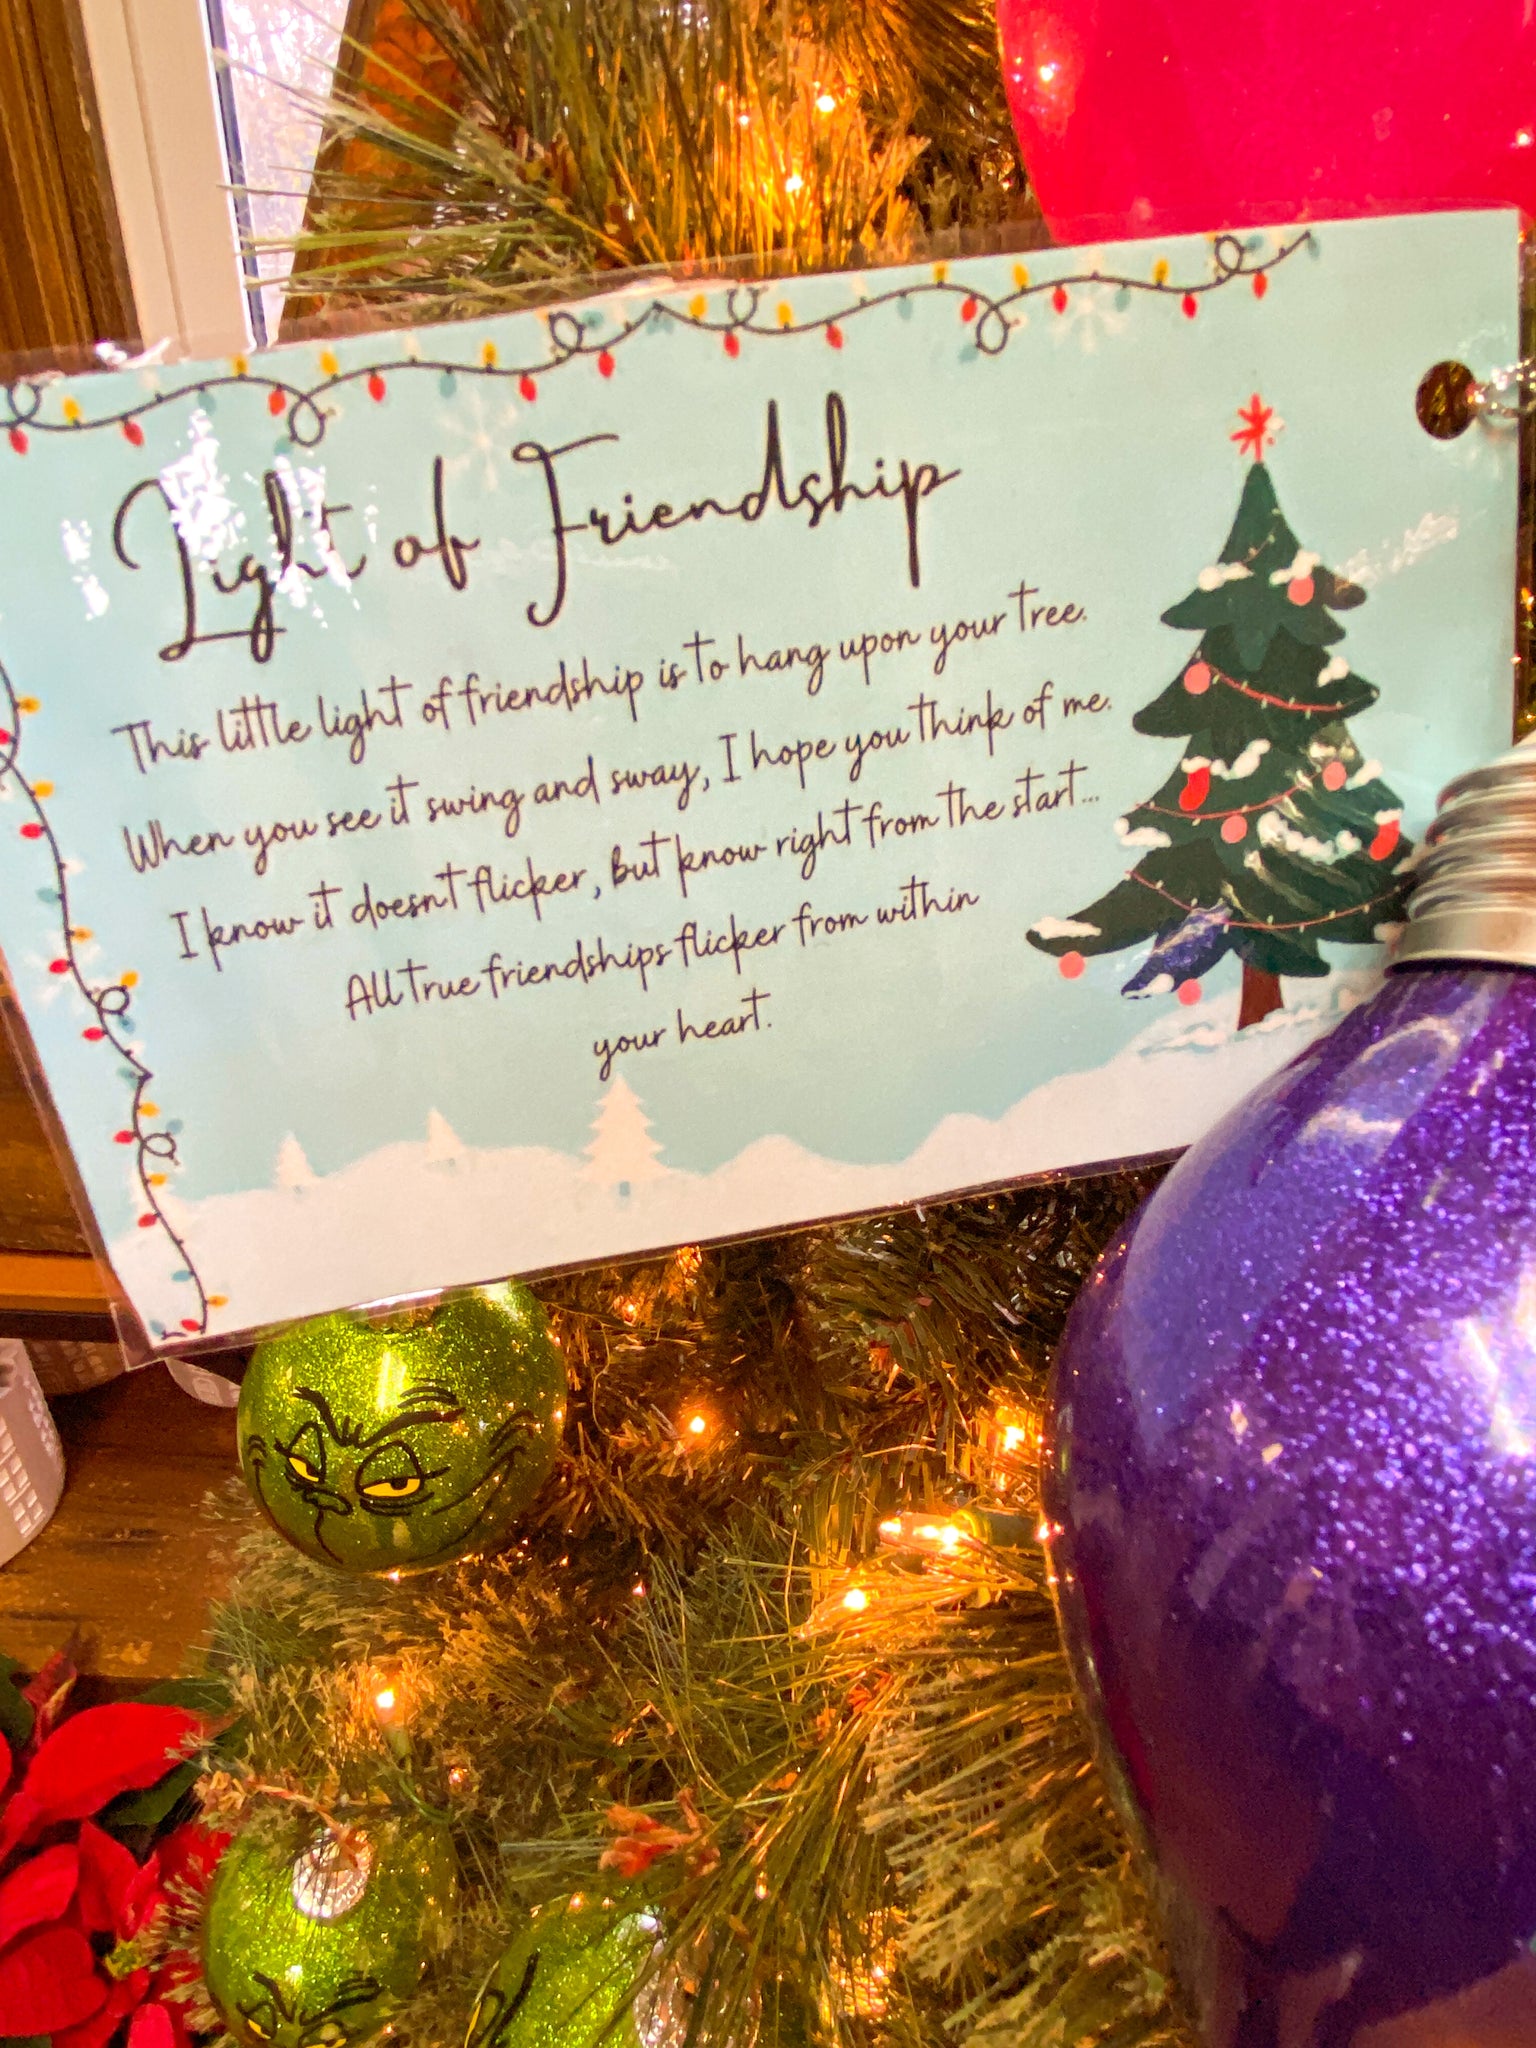 Light of Friendship
This little light of friendship is to hang upon your tree.
When you see it swing and sway, I hope you think of me.
I know it doesn't flicker, but know right from the start...
All true friendships flicker from within
your heart.